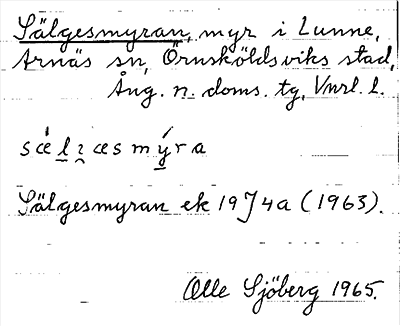 Sälgesmyran, myr i Lunne,
Arnäs sn, Örnsköldsviks stad,
Ång. n. doms. tg, Vnrl. l.
sǽlɀæsmýra
Sälgesmyran ek 19J4a (1963).
Olle Sjöberg 1965.